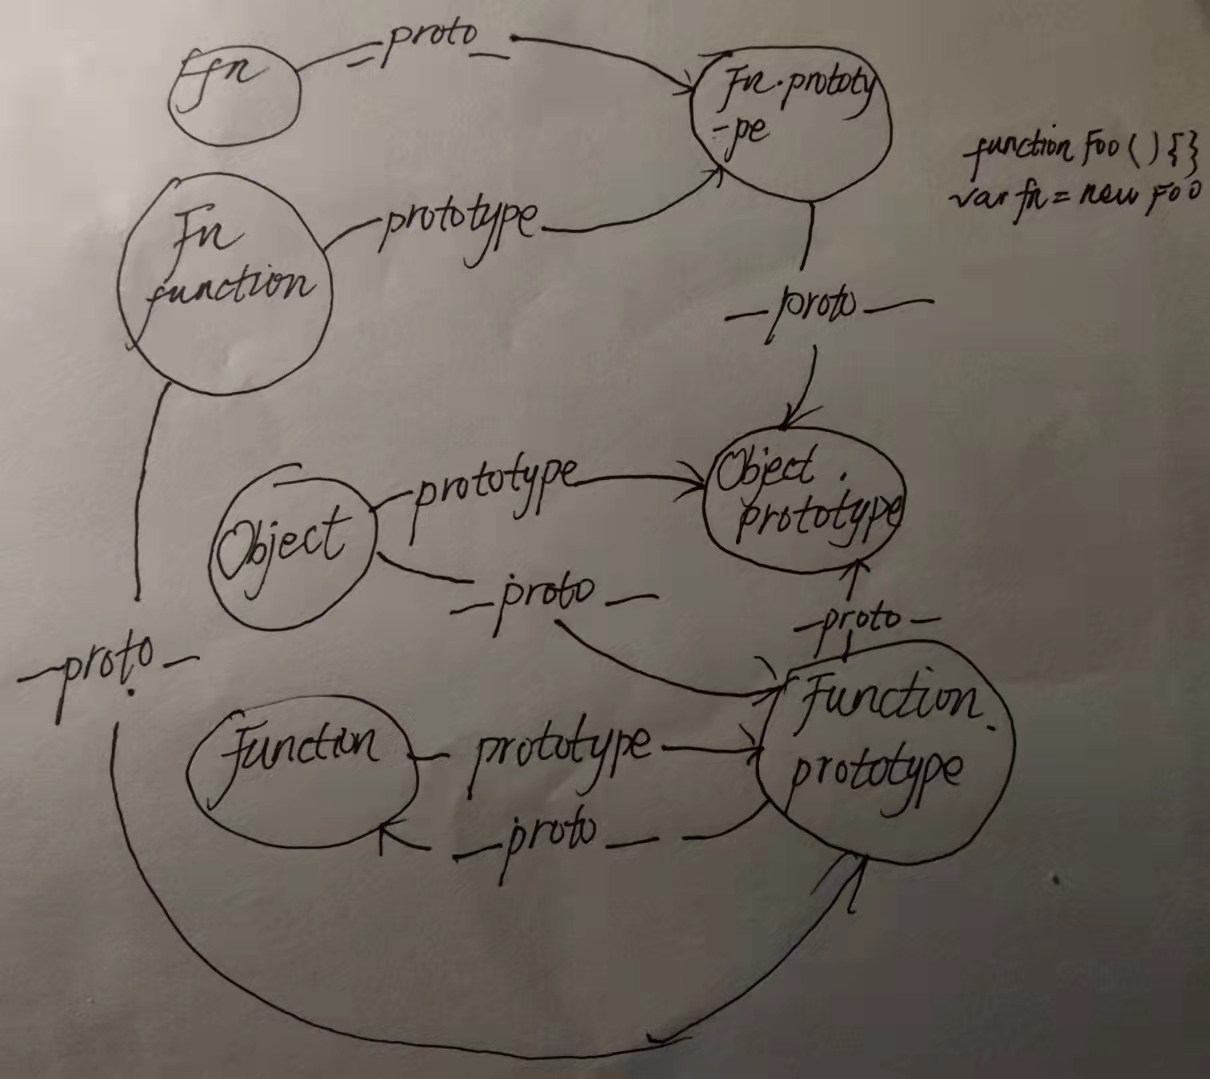 ffn
— proto —
Fn.prototy
-pe
function Foo ( ) { }
var fn = new Foo
Fn
function
prototype
— proto —
Object
prototype
Object .
prototype
— proto —
— proto —
— proto —
Function
prototype
Function .
prototype
— proto —